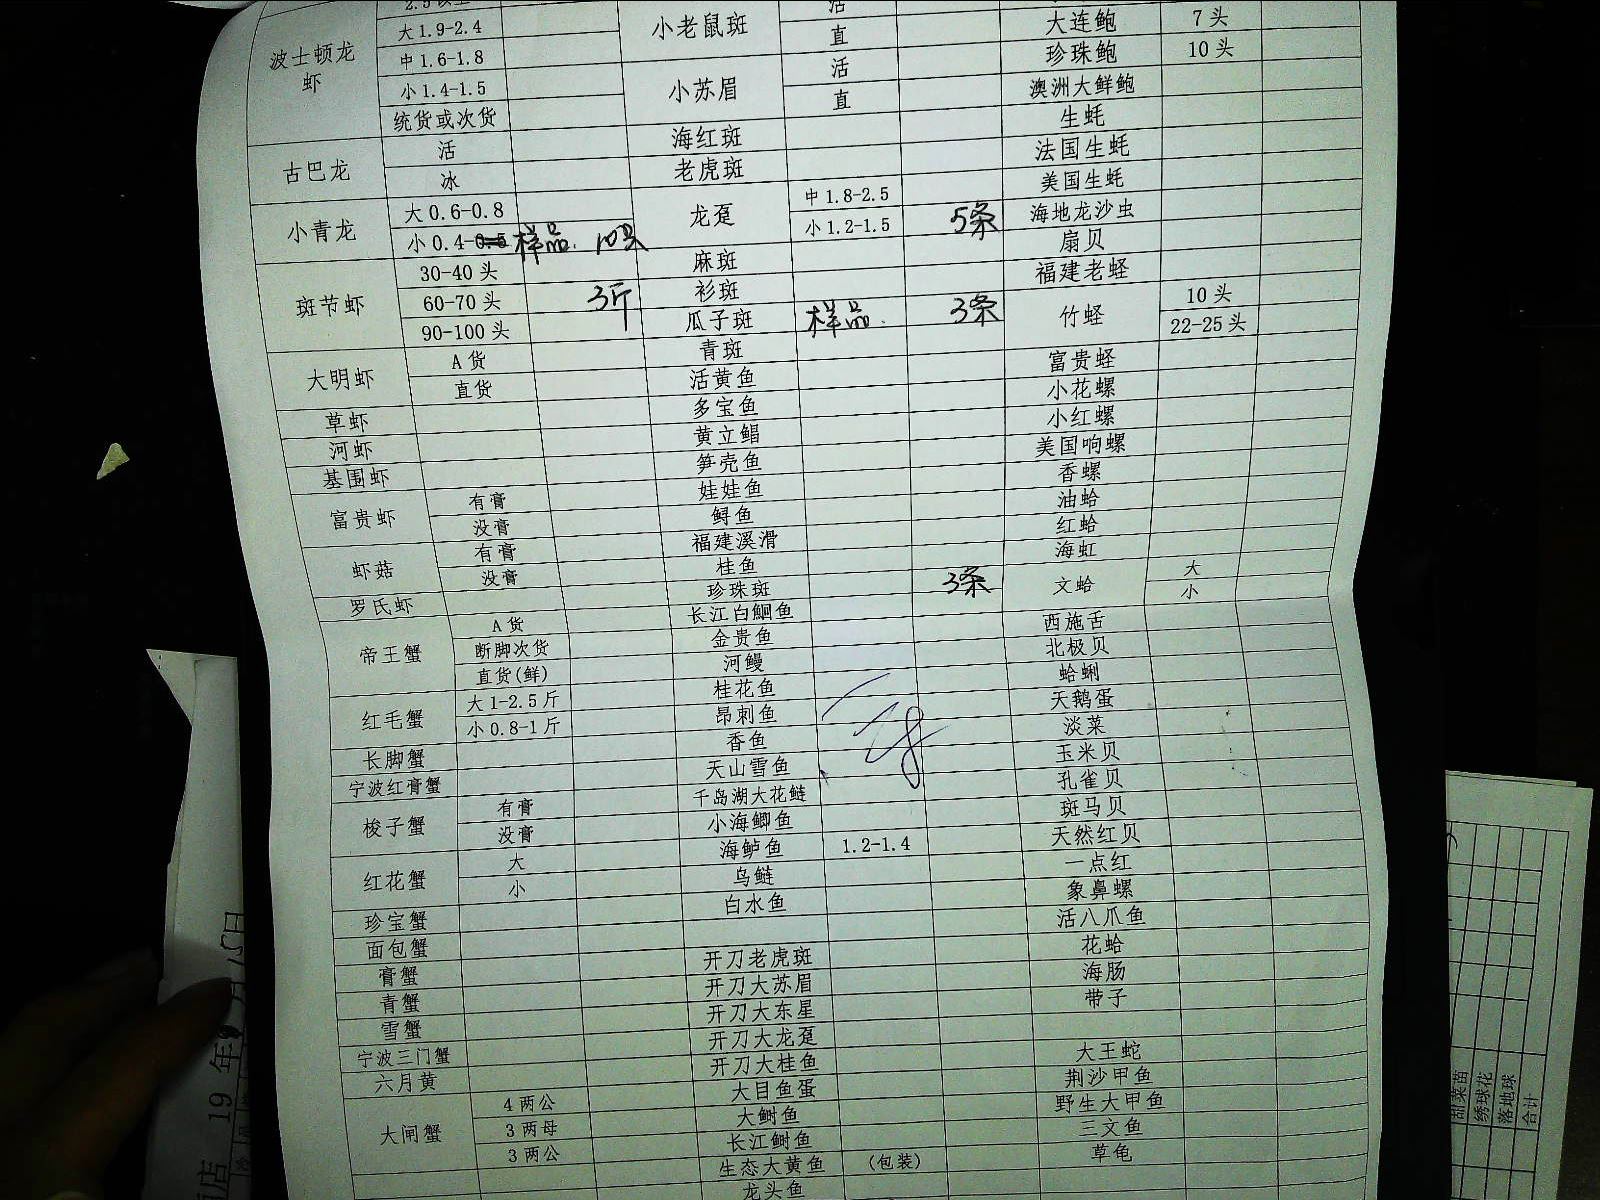 2.5以上 活
波士顿龙虾 大1.9-2.4 小老鼠斑 直 大连鲍 7头
中1.6-1.8 活 珍珠鲍 10头
小1.4-1.5 小苏眉 直 澳洲大鲜鲍
统货或次货 生蚝
古巴龙 活 海红斑 法国生蚝
冰 老虎斑 美国生蚝
小青龙 大0.6-0.8 龙趸 中1.8-2.5 海地龙沙虫
小0.4-0.5 样品 10头 小1.2-1.5 5条 扇贝
斑节虾 30-40头 麻斑 福建老蛏
60-70头 3斤 衫斑 竹蛏 10头
90-100头 瓜子斑 样品 3条 22-25头
大明虾 A货 青斑 富贵蛏
直货 活黄鱼 小花螺
草虾 多宝鱼 小红螺
河虾 黄立鲳 美国响螺
基围虾 笋壳鱼 香螺
富贵虾 有膏 娃娃鱼 油蛤
没膏 鲟鱼 红蛤
虾菇 有膏 福建溪滑 海虹
没膏 桂鱼 文蛤 大
罗氏虾 珍珠斑 3条 小
帝王蟹 A货 长江白鮰鱼 西施舌
断脚次货 金贵鱼 北极贝
直货(鲜) 河鳗 蛤蜊
红毛蟹 大1-2.5斤 桂花鱼 天鹅蛋
小0.8-1斤 昂刺鱼 淡菜
长脚蟹 香鱼 玉米贝
宁波红膏蟹 天山雪鱼 孔雀贝
梭子蟹 有膏 千岛湖大花鲢 斑马贝
没膏 小海鲫鱼 天然红贝
红花蟹 大 海鲈鱼 1.2-1.4 一点红
小 鸟鲢 象鼻螺
珍宝蟹 白水鱼 活八爪鱼
面包蟹 花蛤
膏蟹 开刀老虎斑 海肠
青蟹 开刀大苏眉 带子
雪蟹 开刀大东星
宁波三门蟹 开刀大龙趸 大王蛇
六月黄 开刀大桂鱼 荆沙甲鱼
大闸蟹 4两公 大目鱼蛋 野生大甲鱼
3两母 大鲥鱼 三文鱼
3两公 长江鲥鱼 草龟
生态大黄鱼 (包装)
龙头鱼
店 19 年 月 15日
甜菜苗
绣球花
落地球
合计